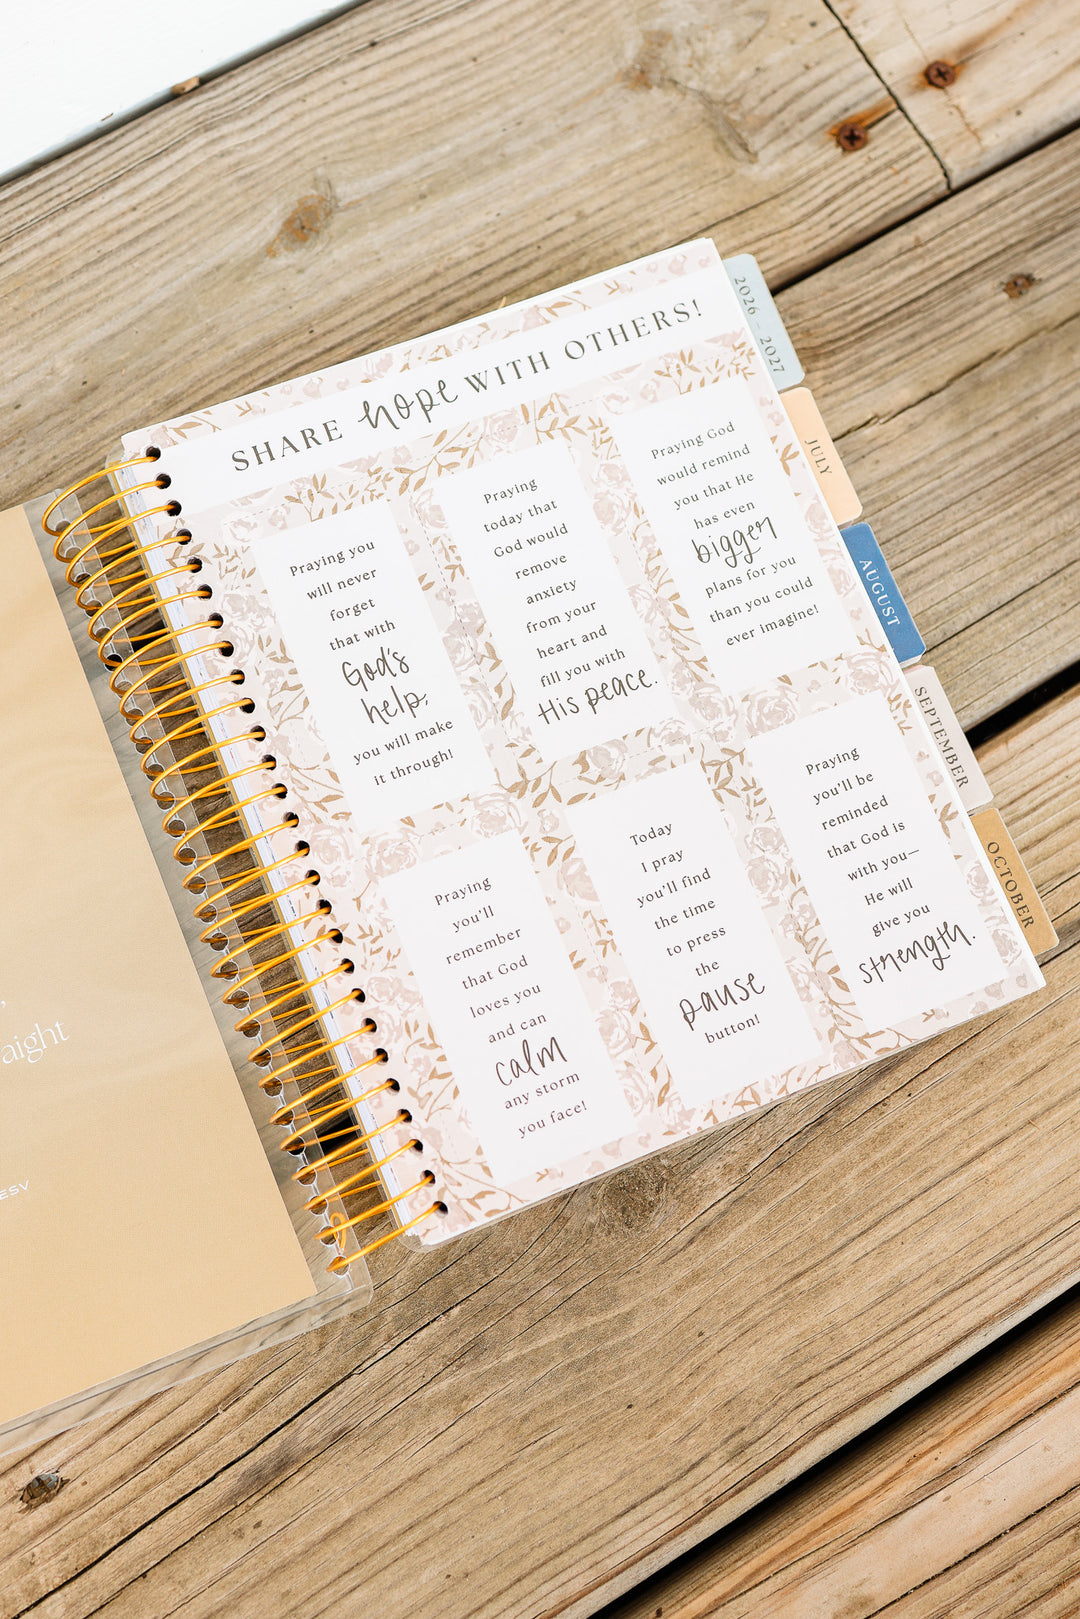 SHARE hope WITH OTHERS!
Praying you
will never
forget
that with
God's
help,
you will make
it through!
Praying
today that
God would
remove
anxiety
from your
heart and
fill you with
His peace.
Praying God
would remind
you that He
has even
bigger
plans for you
than you could
ever imagine!
Praying
you'll
remember
that God
loves you
and can
calm
any storm
you face!
Today
I pray
you'll find
the time
to press
the
pause
button!
Praying
you'll be
reminded
that God is
with you—
He will
give you
strength.
2026 - 2027
JULY
AUGUST
SEPTEMBER
OCTOBER
aight
ESV